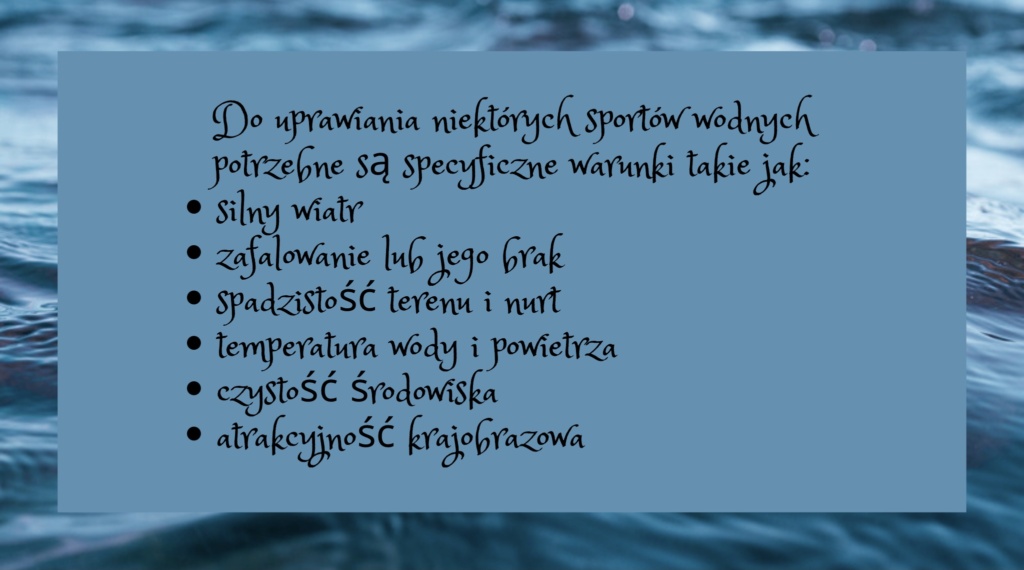 Do uprawiania niektórych sportów wodnych
potrzebne są specyficzne warunki takie jak:
• silny wiatr
• zafalowanie lub jego brak
• spadzistość terenu i nurt
• temperatura wody i powietrza
• czystość środowiska
• atrakcyjność krajobrazowa